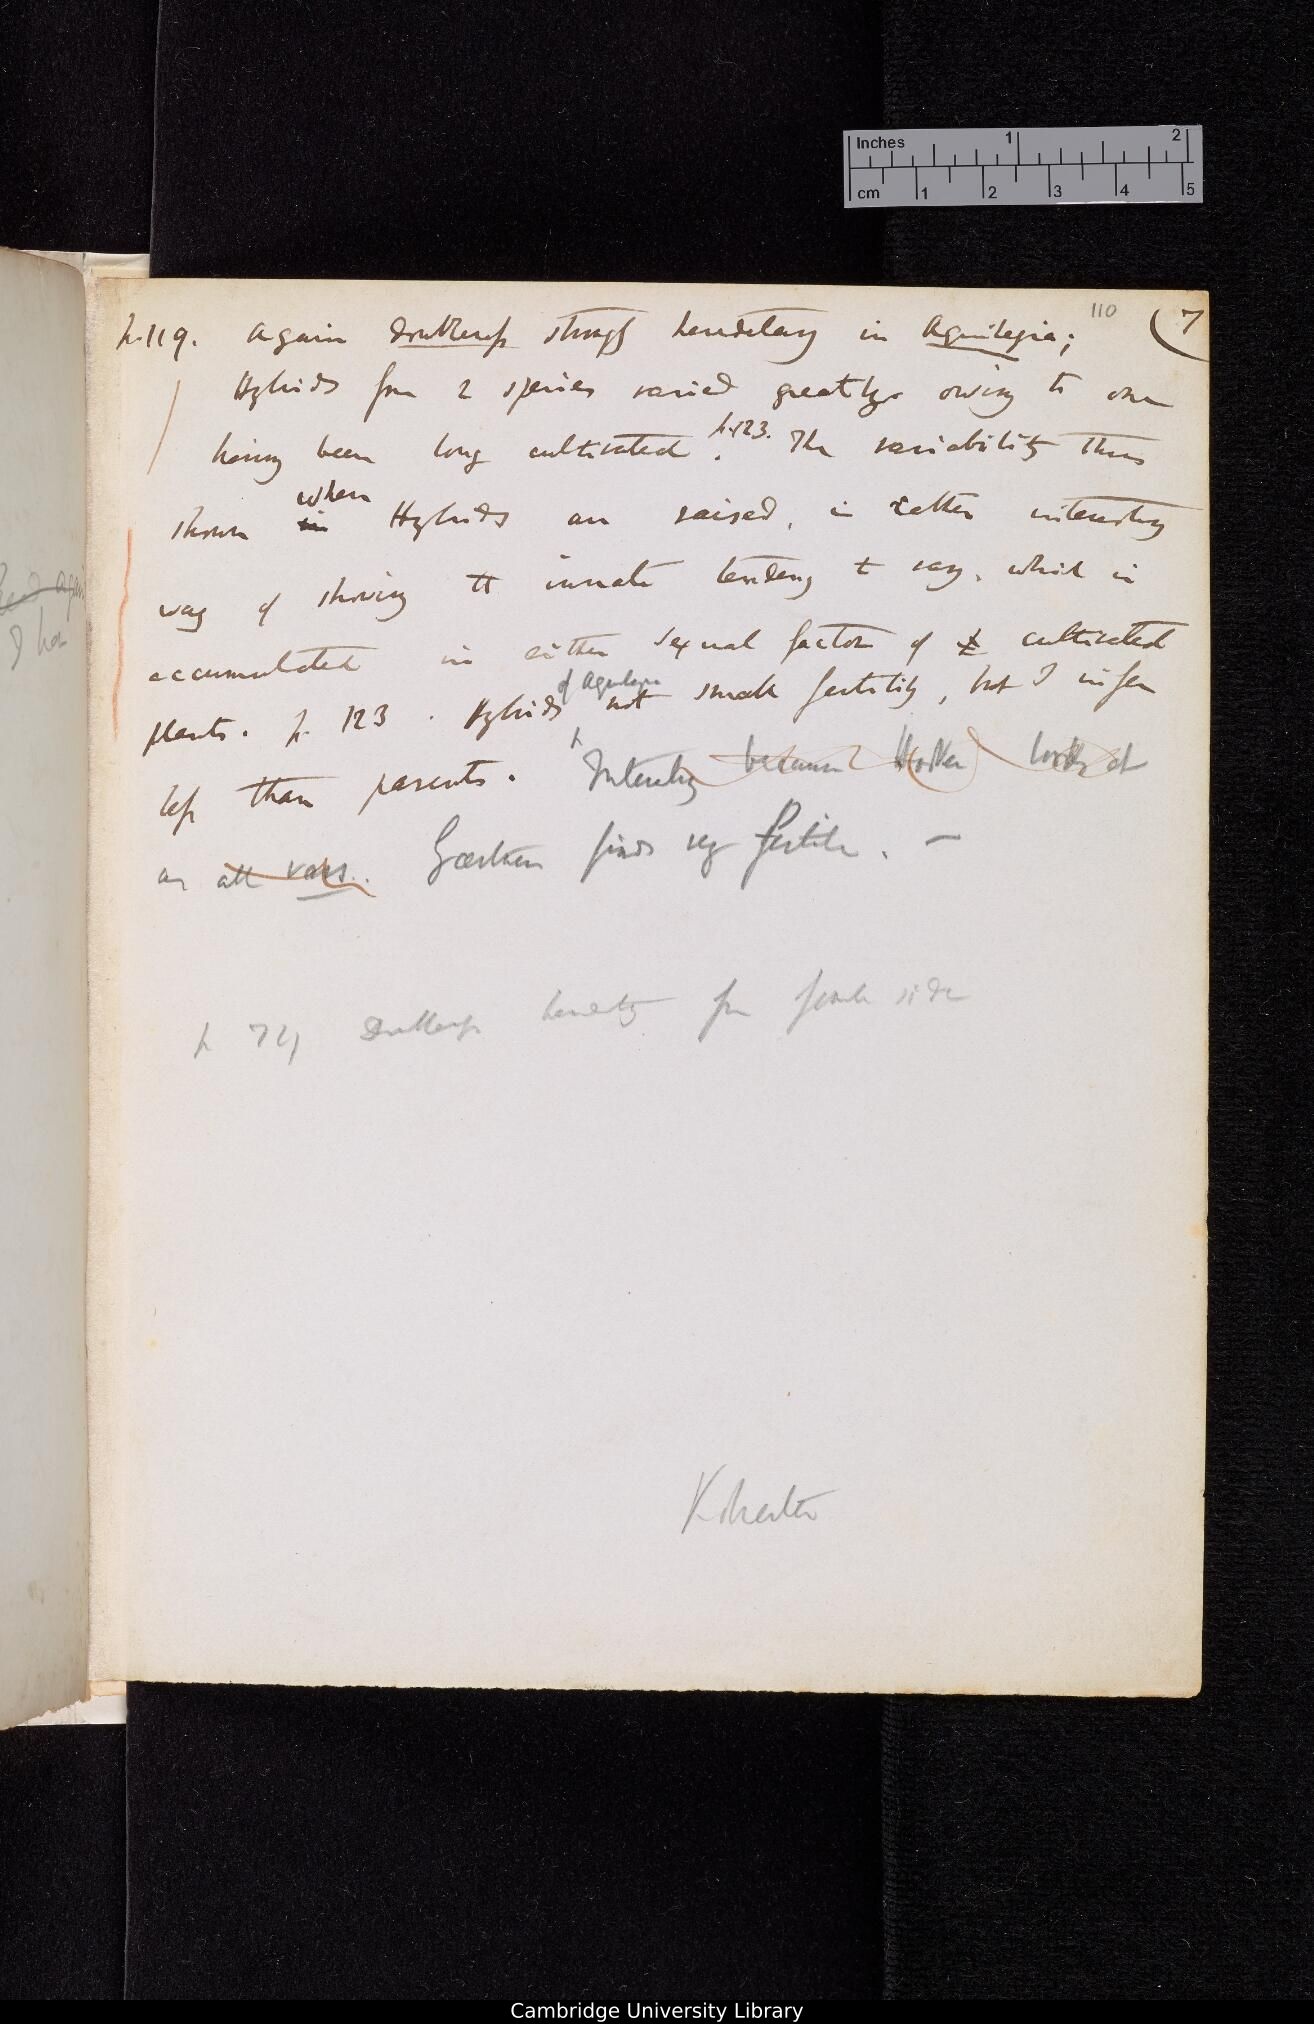 Inches 1 2
cm 1 2 3 4 5
110 (7
p. 119. Again doubleness strongly hereditary in Aquilegia;
Hybrids from 2 species varied greatly owing to one
having been long cultivated p. 123. The variability thus
shown in when Hybrids are raised, is rather interesting
way of showing tt innate tendency to vary, which is
accumulated in either sexual factor of cultivated
plants. p. 123. Hybrids of Aquilegia not small fertility, but I infer
less than parents. Interesting because Hooker looks at
as all vars. Gærtner finds very fertile. —
p 74 Doubleness heredity from female side
Kolreuter
again
I ha
Cambridge University Library